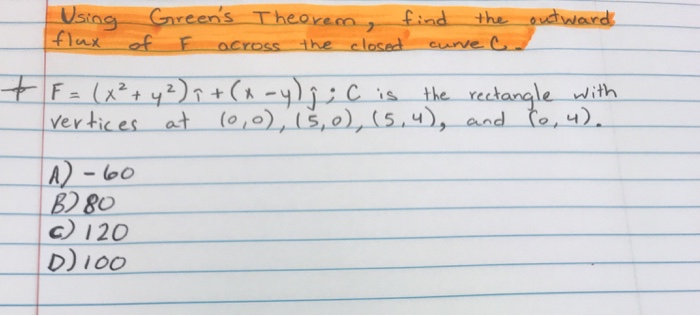 Using Green's Theorem, find the outward
flux of F across the closed curve C.
+ F = (x² + y²) î + (x - y) ĵ ; C is the rectangle with
vertices at (0,0), (5,0), (5,4), and (0,4).
A) -60
B) 80
C) 120
D) 100